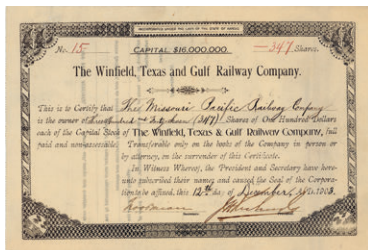 INCORPORATED UNDER THE LAWS OF THE STATE OF KANSAS
No. 15. CAPITAL, $16,000,000. 347 Shares.
The Winfield, Texas and Gulf Railway Company.
This is to Certify that The Missouri Pacific Railway Company
is the owner of Three hundred and Forty Seven (347) Shares of One Hundred Dollars
each of the Capital Stock of The Winfield, Texas & Gulf Railway Company, full
paid and non-assessible. Transferable only on the books of the Company in person or
by attorney, on the surrender of this Certificate.
In Witness Whereof, the President and Secretary have here-
unto subscribed their names, and caused the Seal of the Corpora-
tion to be affixed, this 12th day of December, 1903.